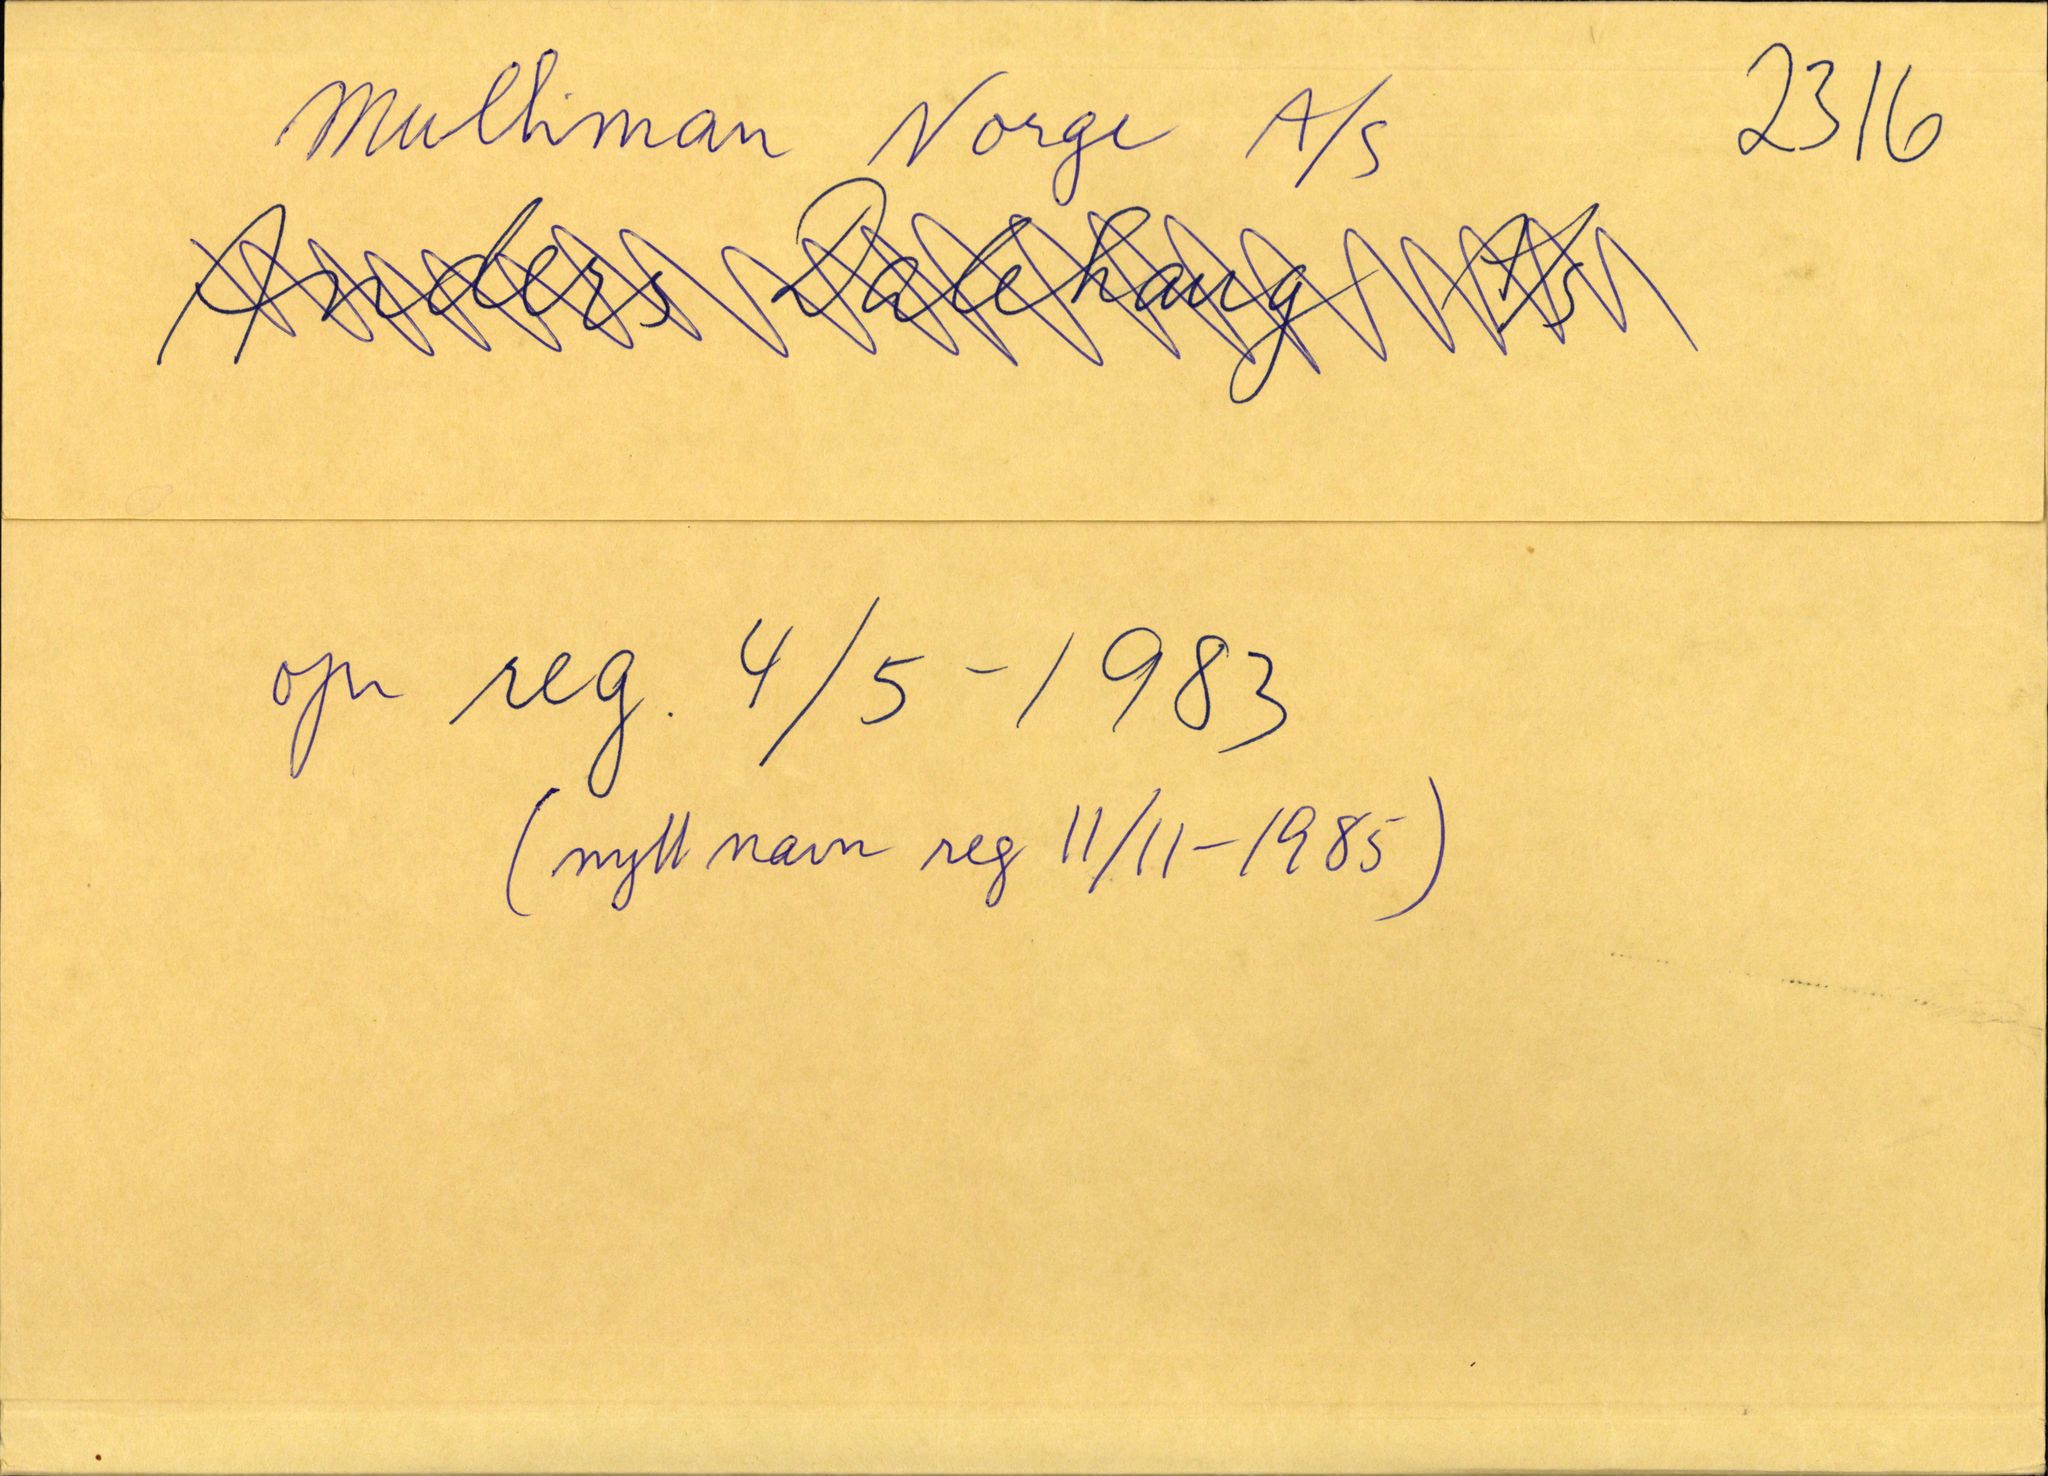 Multiman Norge A/S 2316
Anders Dalehaug A/S
opr reg. 4/5-1983
(nytt navn reg 11/11-1985)